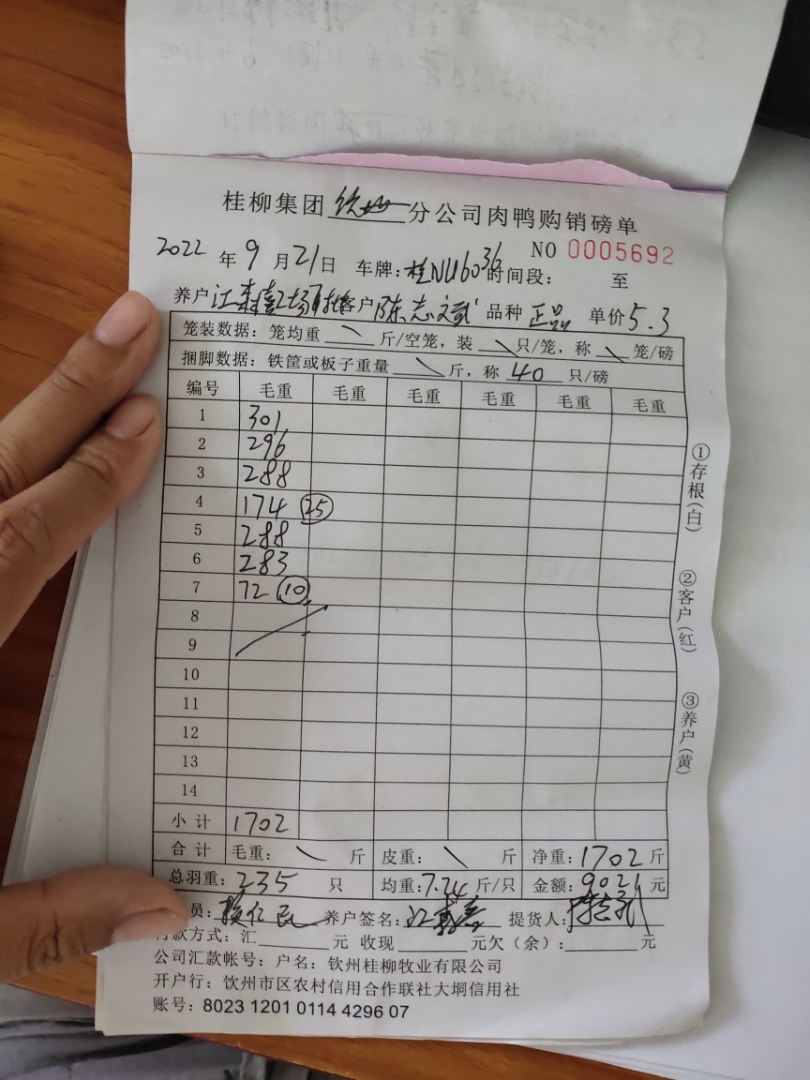 桂柳集团钦州分公司肉鸭购销磅单
NO 0005692
2022年9月21日 车牌:桂NU6036时间段: 至
养户江 客户陈志 品种 正品 单价5.3
笼装数据:笼均重 \ 斤/空笼,装 \ 只/笼,称 \ 笼/磅
捆脚数据:铁筐或板子重量 \ 斤,称 40 只/磅
编号 毛重 毛重 毛重 毛重 毛重 毛重
1 301
2 296
3 288
4 174 25
5 288
6 283
7 72 10
8
9
10
11
12
13
14
小计 1702
合计 毛重: \ 斤 皮重: \ 斤 净重:1702斤
总羽重:235 只 均重:7.24斤/只 金额:9021元
员: 养户签名:江 提货人:陈志
付款方式:汇 元 收现 元欠(余): 元
公司汇款帐号:户名:钦州桂柳牧业有限公司
开户行:钦州市区农村信用合作联社大垌信用社
账号:8023 1201 0114 4296 07
①存根(白)
②客户(红)
③养户(黄)